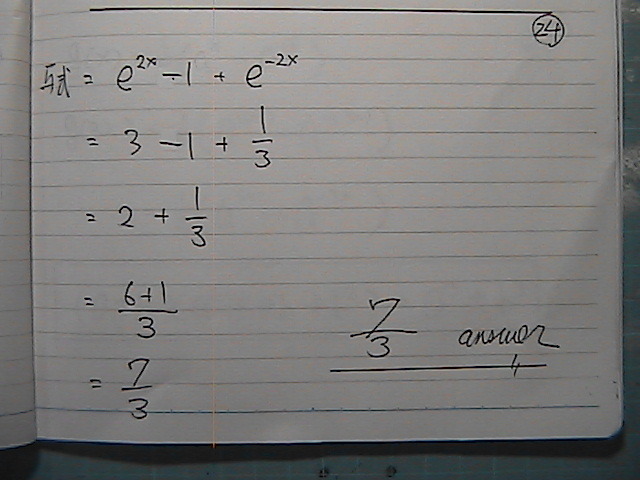 ㉔
与式 = e^{2x} - 1 + e^{-2x}
= 3 - 1 + 1/3
= 2 + 1/3
= (6+1)/3
= 7/3
7/3 answer